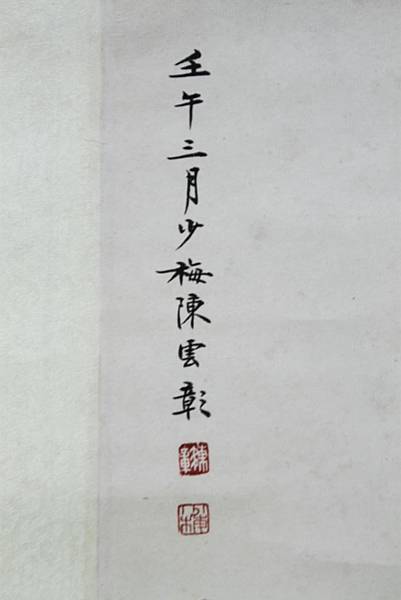 壬午三月少梅陳雲彰